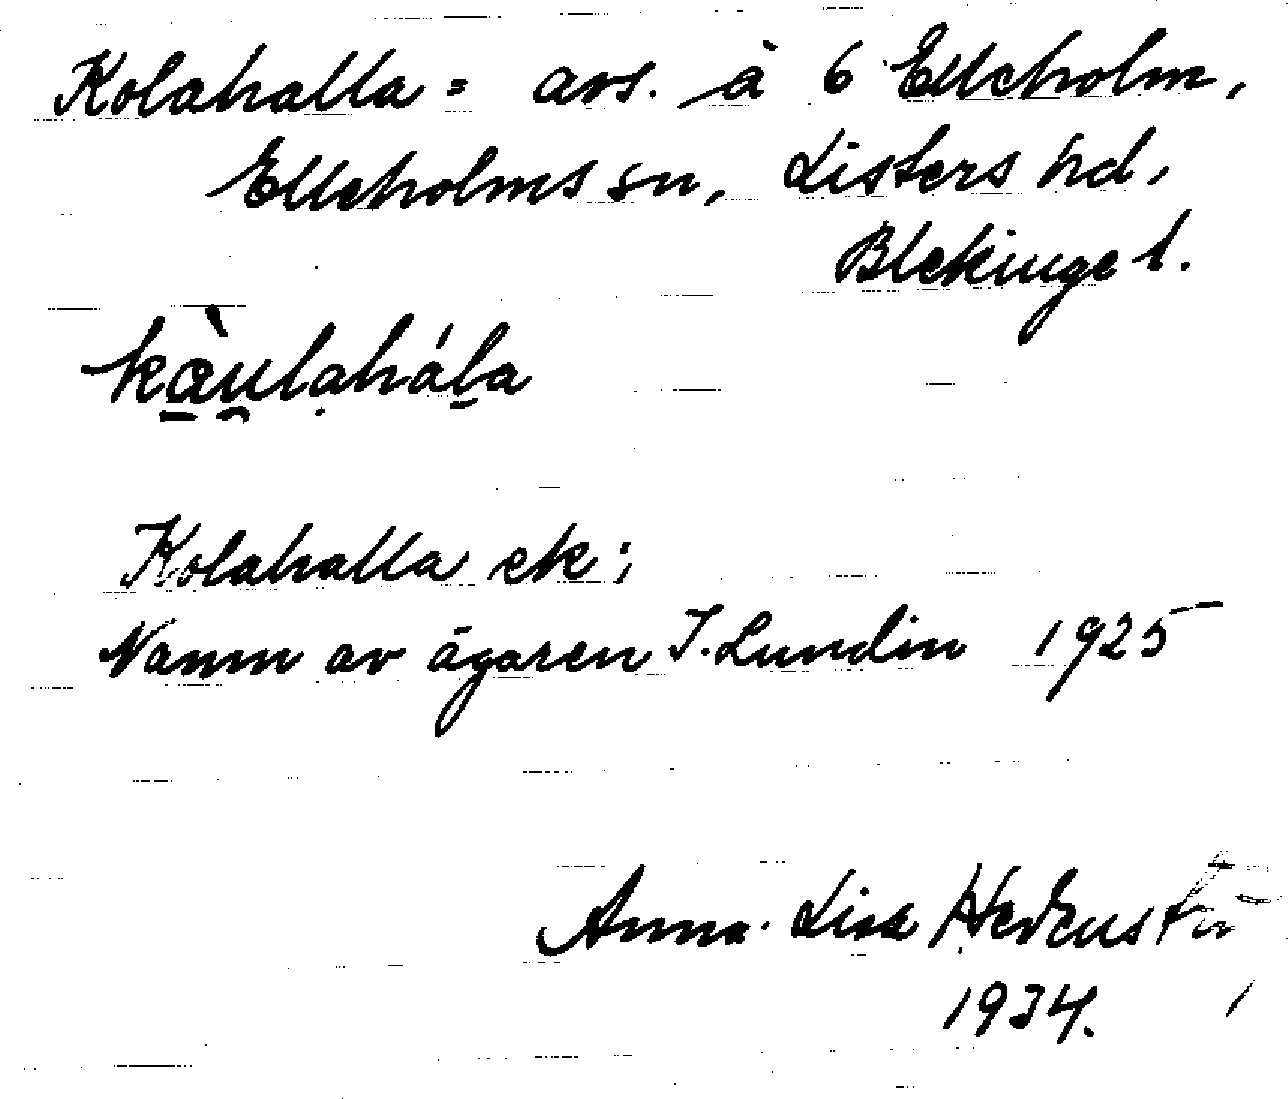 Kolahalla = avs. å 6 Elleholm,
Elleholms sn, Listers hd,
Blekinge l.
kàu̯lahála
Kolahalla ek;
Namn av ägaren J. Lundin 1925
Anna-Lisa
1934.